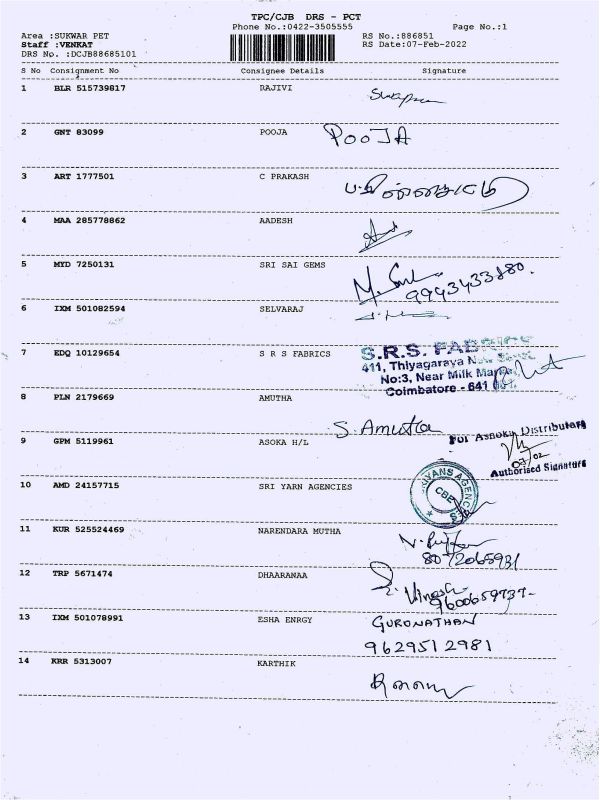 TPC/CJB DRS - PCT
Phone No.:0422-3505555 Page No.:1
Area :SUKWAR PET RS No.:886851
Staff :VENKAT RS Date:07-Feb-2022
DRS No. :DCJB88685101
S No Consignment No Consignee Details Signature
1 BLR 515739817 RAJIVI
2 GNT 83099 POOJA POOJA
3 ART 1777501 C PRAKASH
4 MAA 285778862 AADESH
5 MYD 7250131 SRI SAI GEMS
9993433880.
6 IXM 501082594 SELVARAJ
7 EDQ 10129654 S R S FABRICS S.R.S. FABRICS
411, Thiyagaraya New Street
No:3, Near Milk
Coimbatore - 641
8 PLN 2179669 AMUTHA S. Amutha
9 GPM 5119961 ASOKA H/L For Ashoka Distributors
07/02
Authorised Signature
10 AMD 24157715 SRI YARN AGENCIES AGENCIES
CBE
11 KUR 525524469 NARENDARA MUTHA
8072065931
12 TRP 5671474 DHAARANAA
Vinash
9600659737-
13 IXM 501078991 ESHA ENRGY GURUNATHAN
9629512981
14 KRR 5313007 KARTHIK